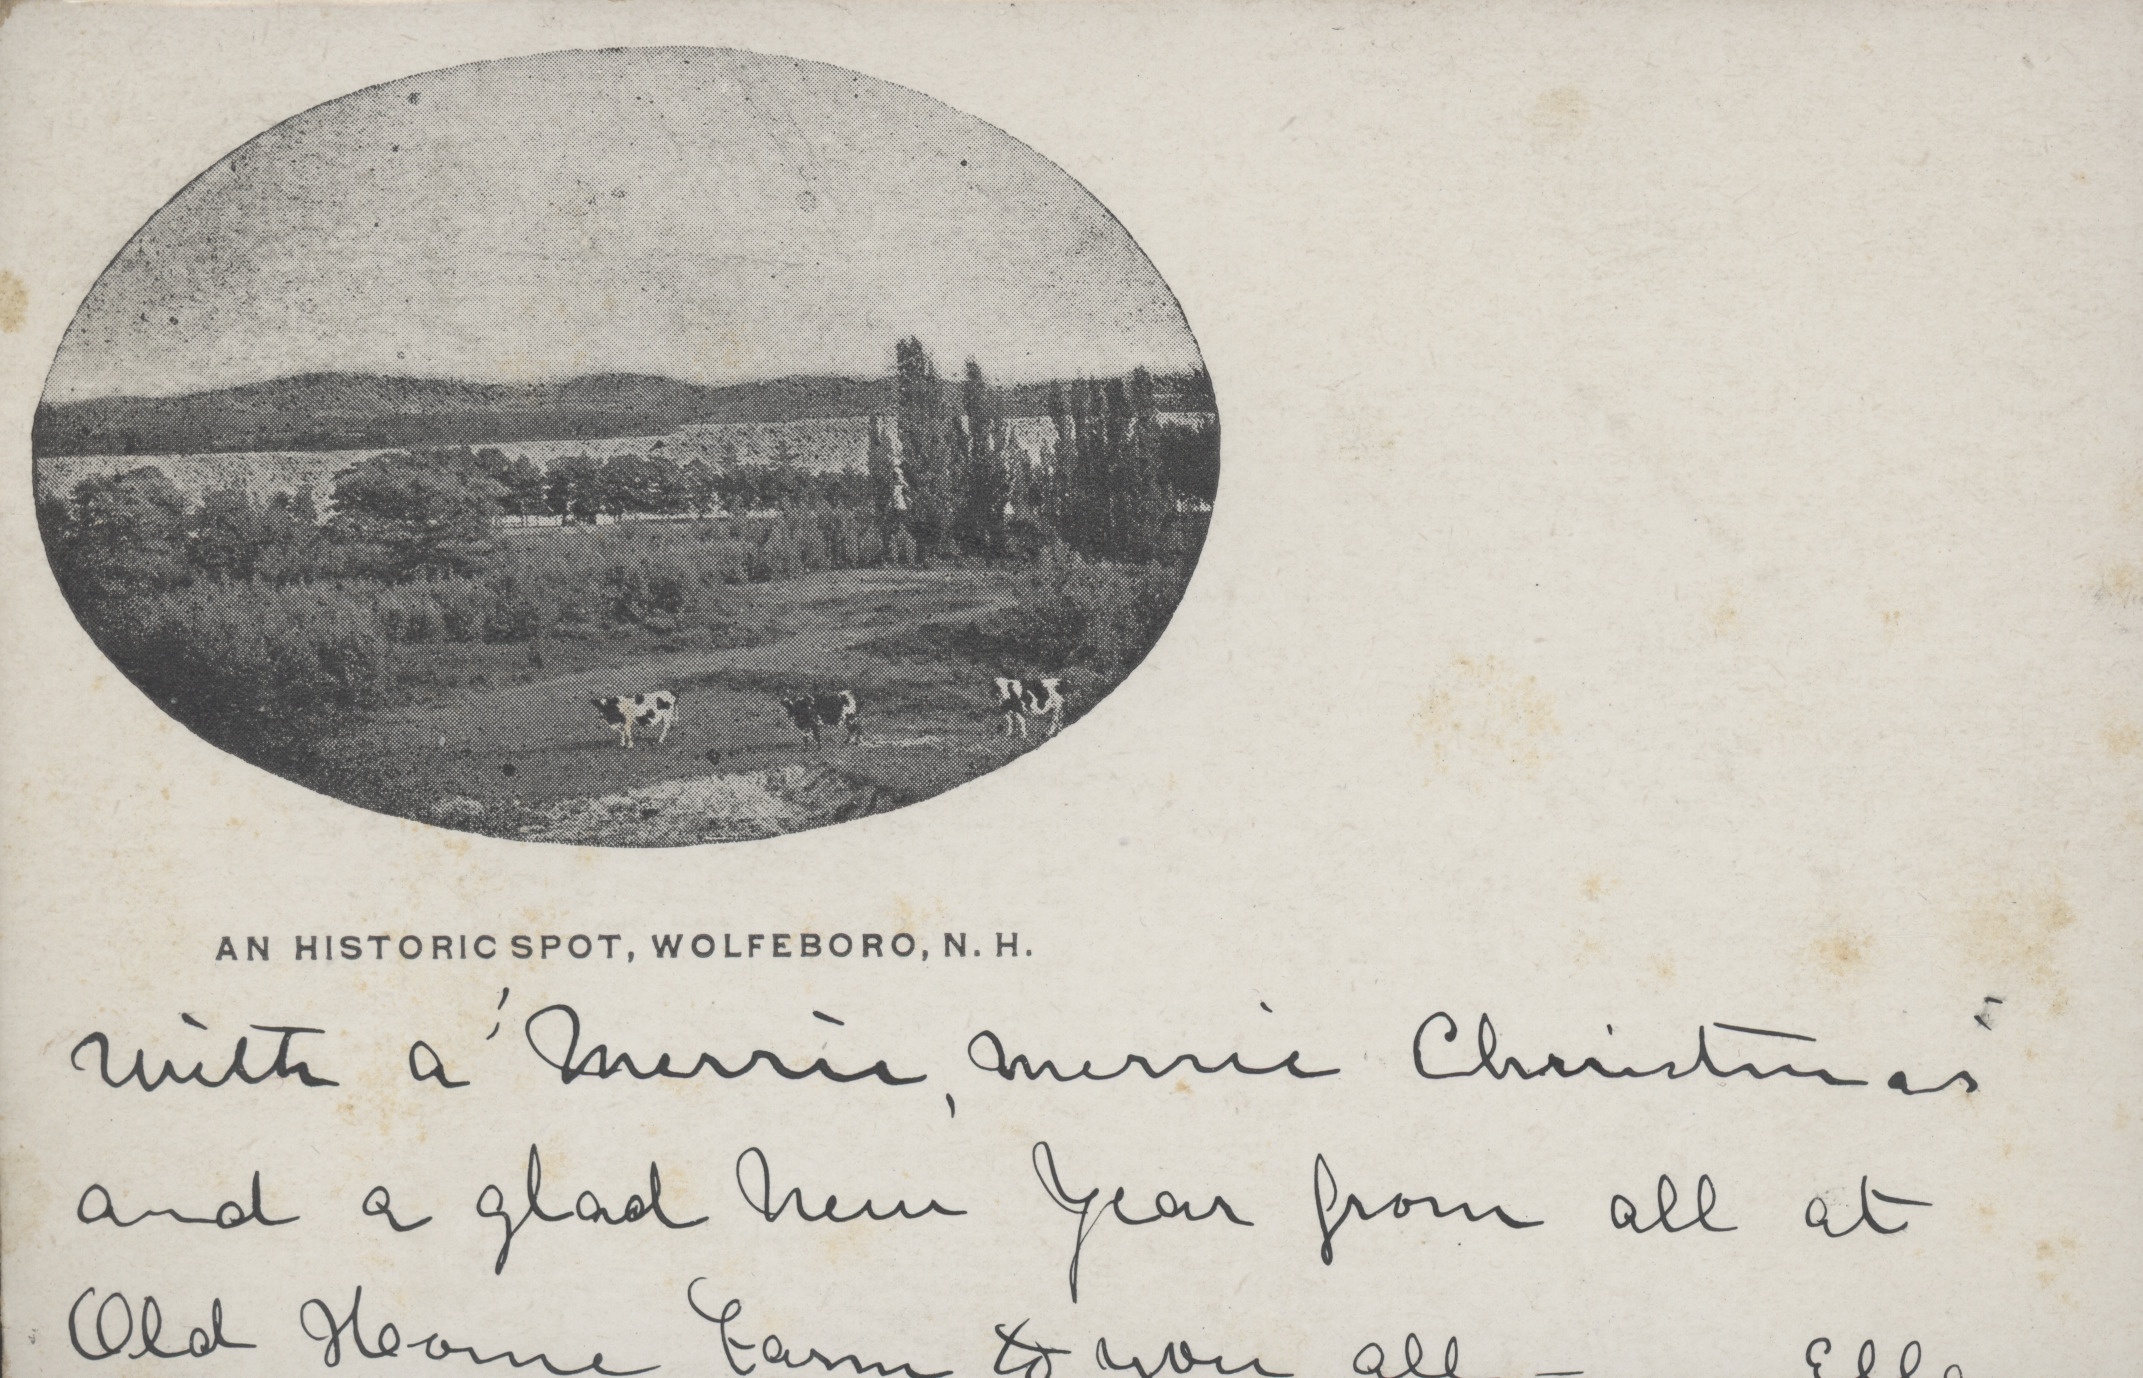 AN HISTORIC SPOT, WOLFEBORO, N. H.
with a "Merrie, merrie Christmas"
and a glad New Year from all at
Old Home Farm to you all –